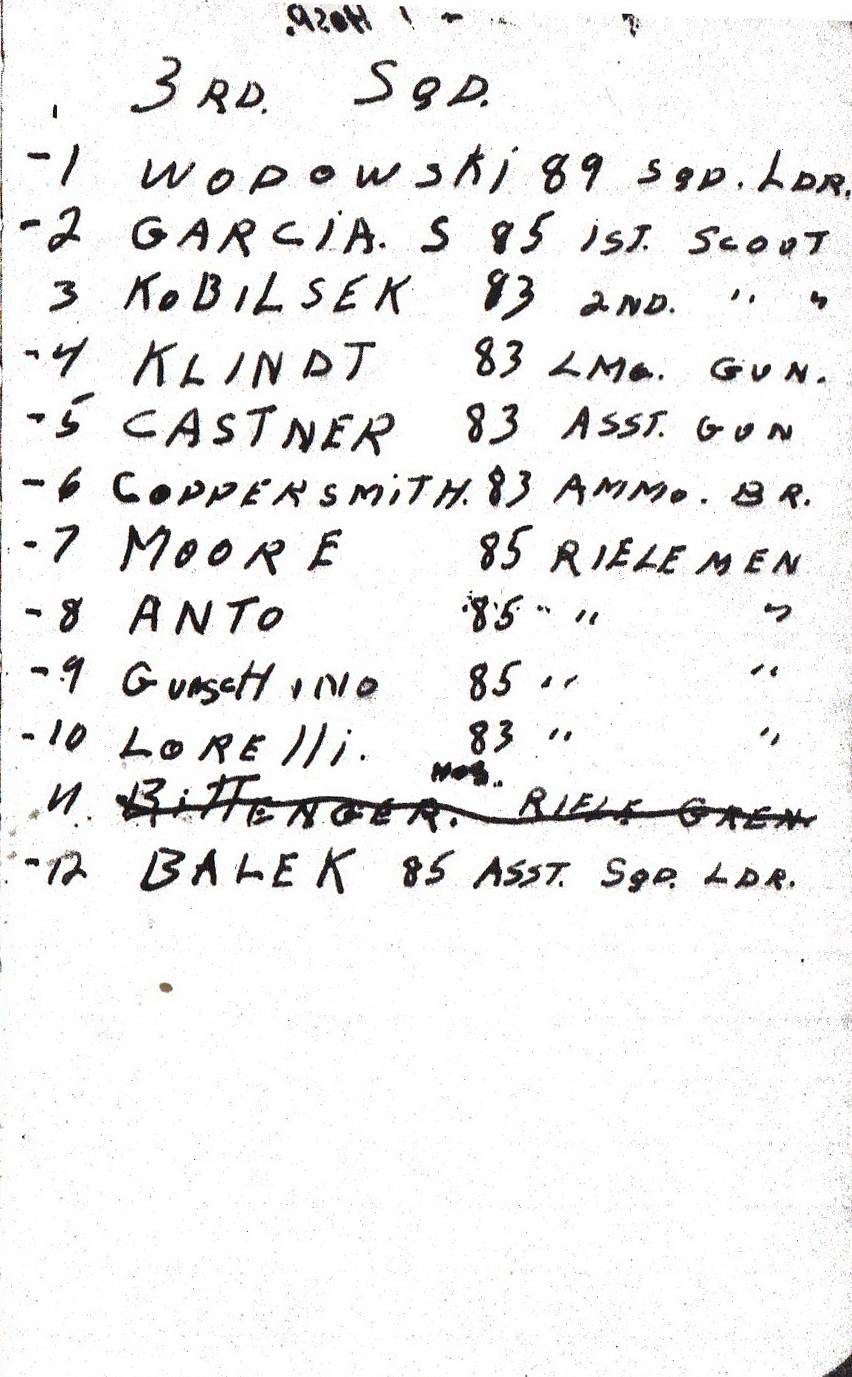 3 RD. SQD.
-1 WODOWSKI 89 SQD. LDR.
-2 GARCIA. S 85 1ST. SCOUT
3 KOBILSEK 83 2ND. " "
-4 KLINDT 83 LMG. GUN.
-5 CASTNER 83 ASST. GUN
-6 COPPERSMITH. 83 AMMO. BR.
-7 MOORE 85 RIFLEMEN
-8 ANTO 85 " "
-9 85 " "
-10 LORElli. 83 " "
11. BITTENGER. RIFLE GREN.
-12 BALEK 85 ASST. SQD. LDR.